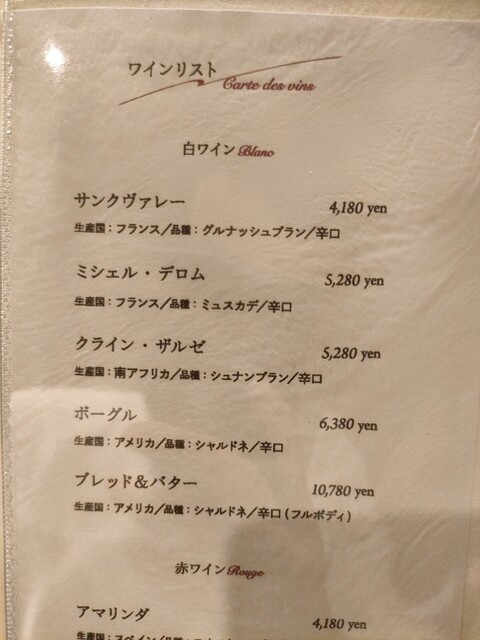 ワインリスト
Carte des vins
白ワイン Blanc
サンクヴァレー 4,180 yen
生産国：フランス／品種：グルナッシュブラン／辛口
ミシェル・デロム 5,280 yen
生産国：フランス／品種：ミュスカデ／辛口
クライン・ザルゼ 5,280 yen
生産国：南アフリカ／品種：シュナンブラン／辛口
ボーグル 6,380 yen
生産国：アメリカ／品種：シャルドネ／辛口
ブレッド＆バター 10,780 yen
生産国：アメリカ／品種：シャルドネ／辛口（フルボディ）
赤ワイン Rouge
アマリンダ 4,180 yen
生産国：スペイン／品種：